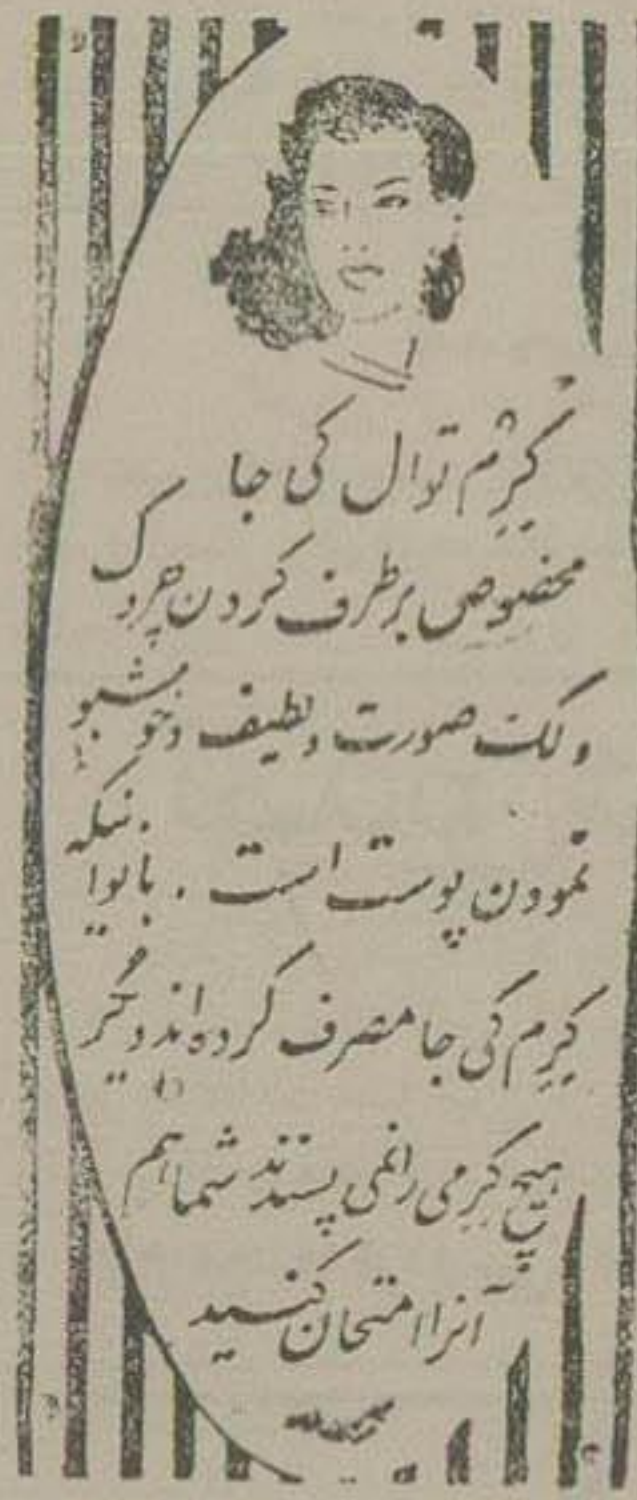 کرم توال کی جا
مخصوص برطرف کردن چروک
ولک صورت ولطیف وخوشبو
نمودن پوست است . بانوانیکه
کرم کی جا مصرف کرده‌اند دیگر
هیچ کرمی رانمی پسندند شما هم
آنرا امتحان کنید